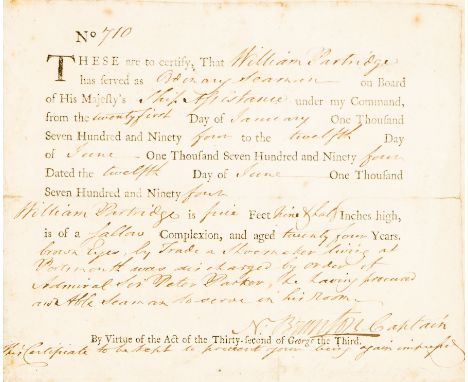 No 710
THESE are to certify, That William Partridge
has served as Ordinary Seaman on Board
of His Majesty's Ship Assistance under my Command,
from the twenty first Day of January One Thousand
Seven Hundred and Ninety four to the twelfth Day
of June One Thousand Seven Hundred and Ninety four
Dated the twelfth Day of June One Thousand
Seven Hundred and Ninety four
William Partridge is five Feet Nine & half Inches high,
is of a Sallow Complexion, and aged twenty four Years.
brown Eyes, by Trade a Shoemaker living at
Portsmouth was discharged by order of
Admiral Sir Peter Parker, he having procured
an Able Seaman to serve in his Room.
Nl Brunton Captain
By Virtue of the Act of the Thirty-second of George the Third.
this Certificate to be kept to prevent your being again impress'd